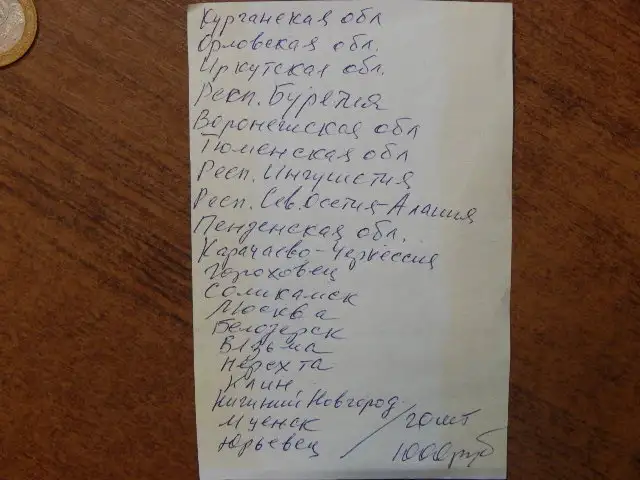 Курганская обл
Орловская обл.
Иркутская обл.
Респ. Бурятия
Воронежская обл
Тюменская обл
Респ. Ингушетия
Респ. Сев. Осетия-Алания
Пензенская обл.
Карачаево-Черкессия
Гороховец
Соликамск
Москва
Белозерск
Вязьма
Нерехта
Клин
Нижний Новгород
Мценск / 20 шт
Юрьевец 1000 руб